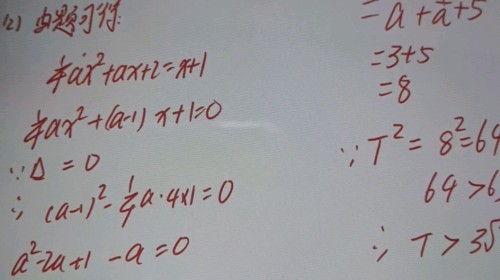 (2) 由题可得:
¼ax²+ax+2=x+1
¼ax²+(a-1)x+1=0
∵Δ=0
∴(a-1)²-¼a·4×1=0
a²-2a+1-a=0
=a+a+5
=3+5
=8
∵T²=8²=64
64>6
∴T>3√